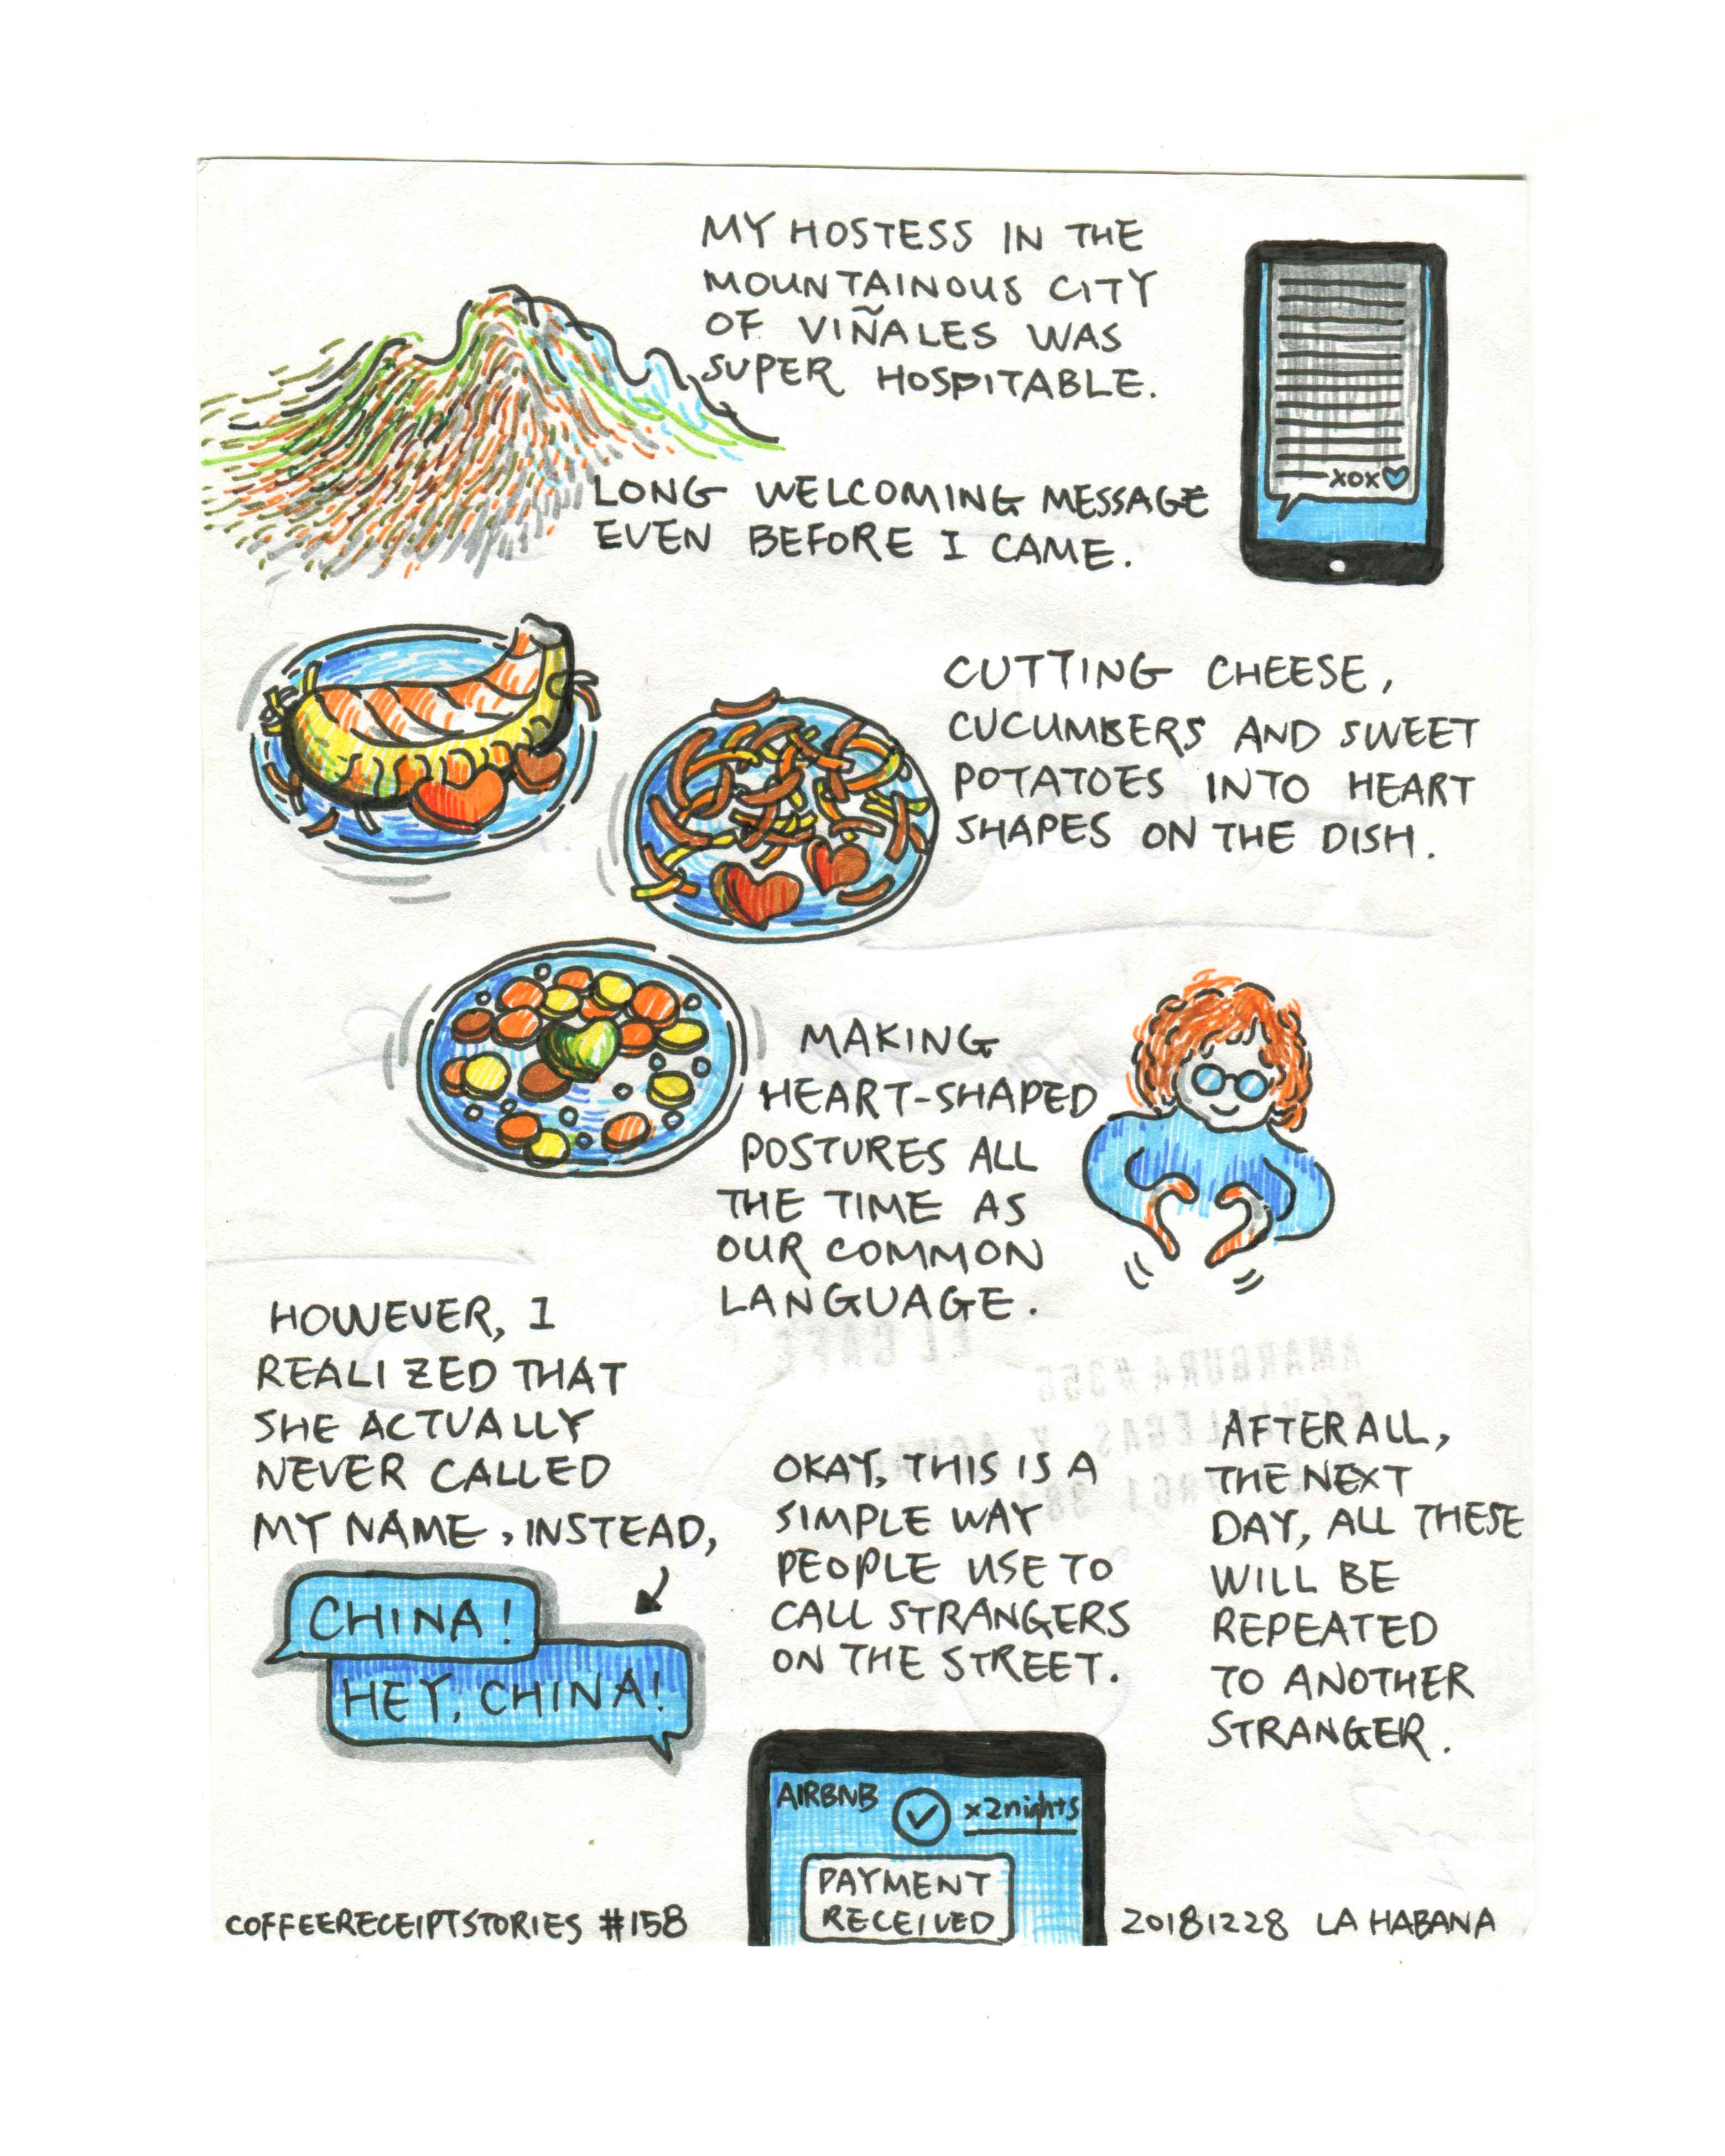 MY HOSTESS IN THE
MOUNTAINOUS CITY
OF VIÑALES WAS
SUPER HOSPITABLE.
XOX
LONG WELCOMING MESSAGE
EVEN BEFORE I CAME.
CUTTING CHEESE,
CUCUMBERS AND SWEET
POTATOES INTO HEART
SHAPES ON THE DISH.
MAKING
HEART-SHAPED
POSTURES ALL
THE TIME AS
OUR COMMON
LANGUAGE.
HOWEVER, I
REALIZED THAT
SHE ACTUALLY
NEVER CALLED
MY NAME, INSTEAD,
CHINA!
HEY, CHINA!
OKAY, THIS IS A
SIMPLE WAY
PEOPLE USE TO
CALL STRANGERS
ON THE STREET.
AFTER ALL,
THE NEXT
DAY, ALL THESE
WILL BE
REPEATED
TO ANOTHER
STRANGER.
AIRBNB
x2nights
PAYMENT
RECEIVED
COFFEERECEIPTSTORIES #158
20181228 LA HABANA
EL CAFE
AMARGURA #358